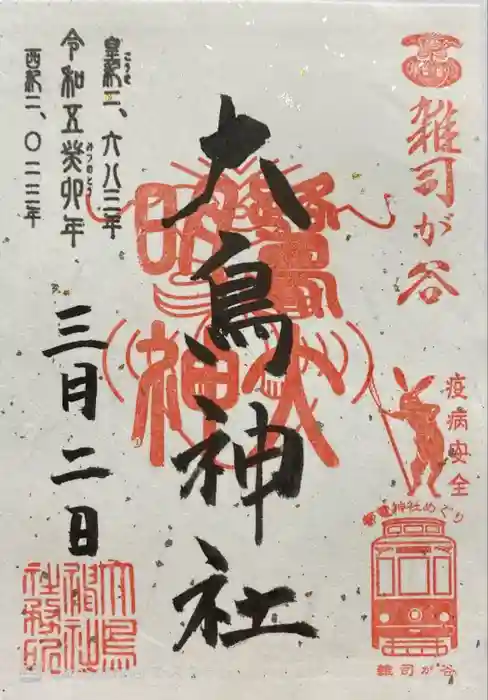 雑司が谷
疫病安全
都電神社めぐり
雑司が谷
大鳥神社
皇紀二、六八三年
こうき
令和五癸卯年
みずのとう
西紀二、〇二三年
三月二日
大鳥
神社
社務所